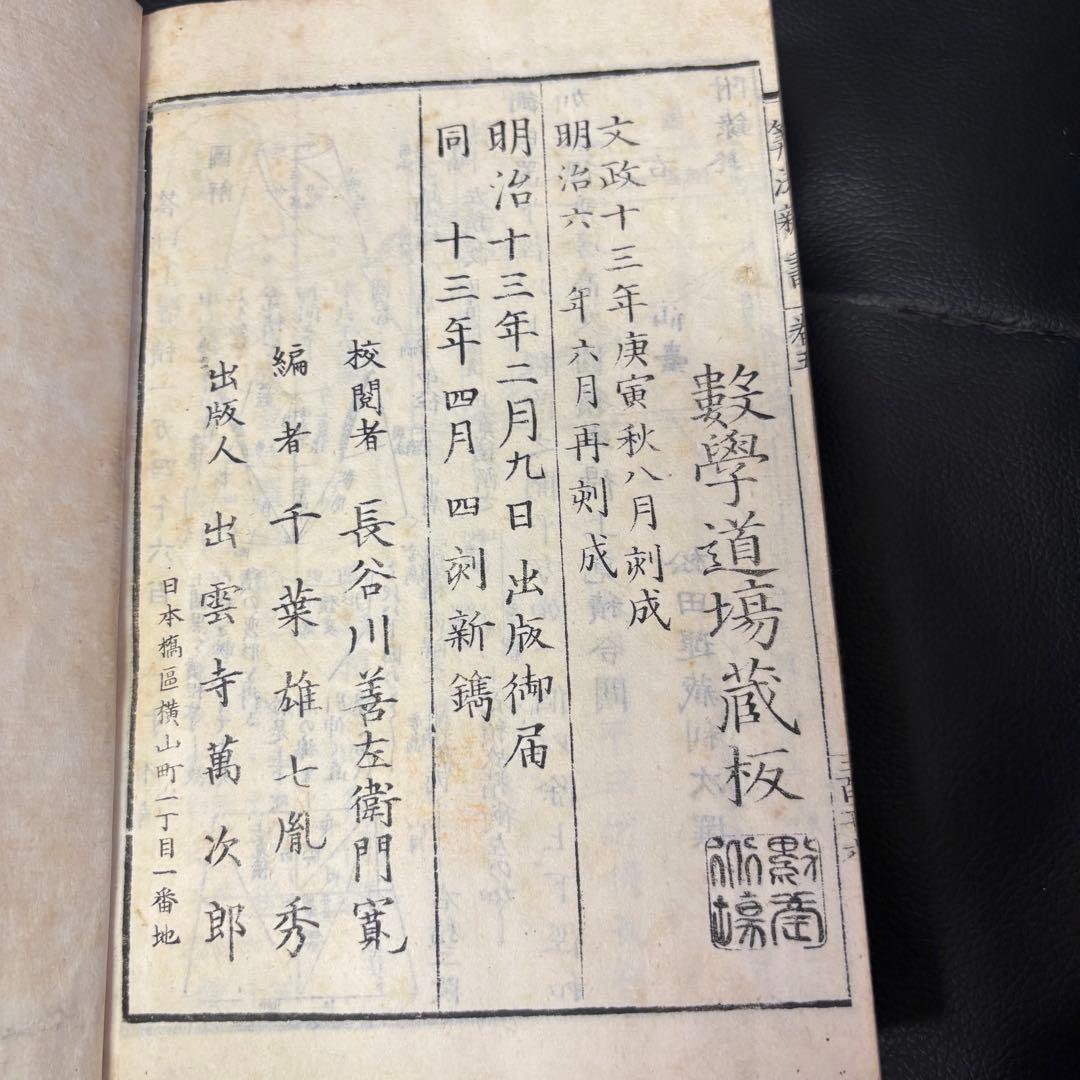 算法新書 卷五
數學道場蔵板
文政十三年庚寅秋八月刻成
明治六年六月再刻成
明治十三年二月九日出版御届
同 十三年四月四刻新鐫
校閲者 長谷川善左衛門寛
編者 千葉雄七胤秀
出版人 出雲寺萬次郎
日本橋區横山町一丁目一番地